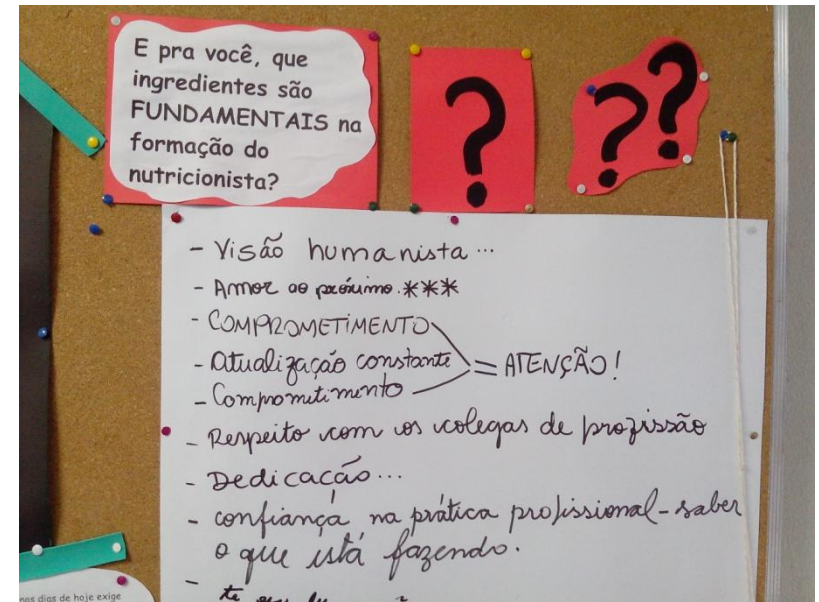 E pra você, que
ingredientes são
FUNDAMENTAIS na
formação do
nutricionista?
?
??
- Visão humanista...
- Amor ao próximo.***
- COMPROMETIMENTO
- Atualização constante = ATENÇÃO!
- Comprometimento
- Respeito com os colegas de profissão
- Dedicação...
- confiança na prática profissional - saber
o que está fazendo.
-
nos dias de hoje exige